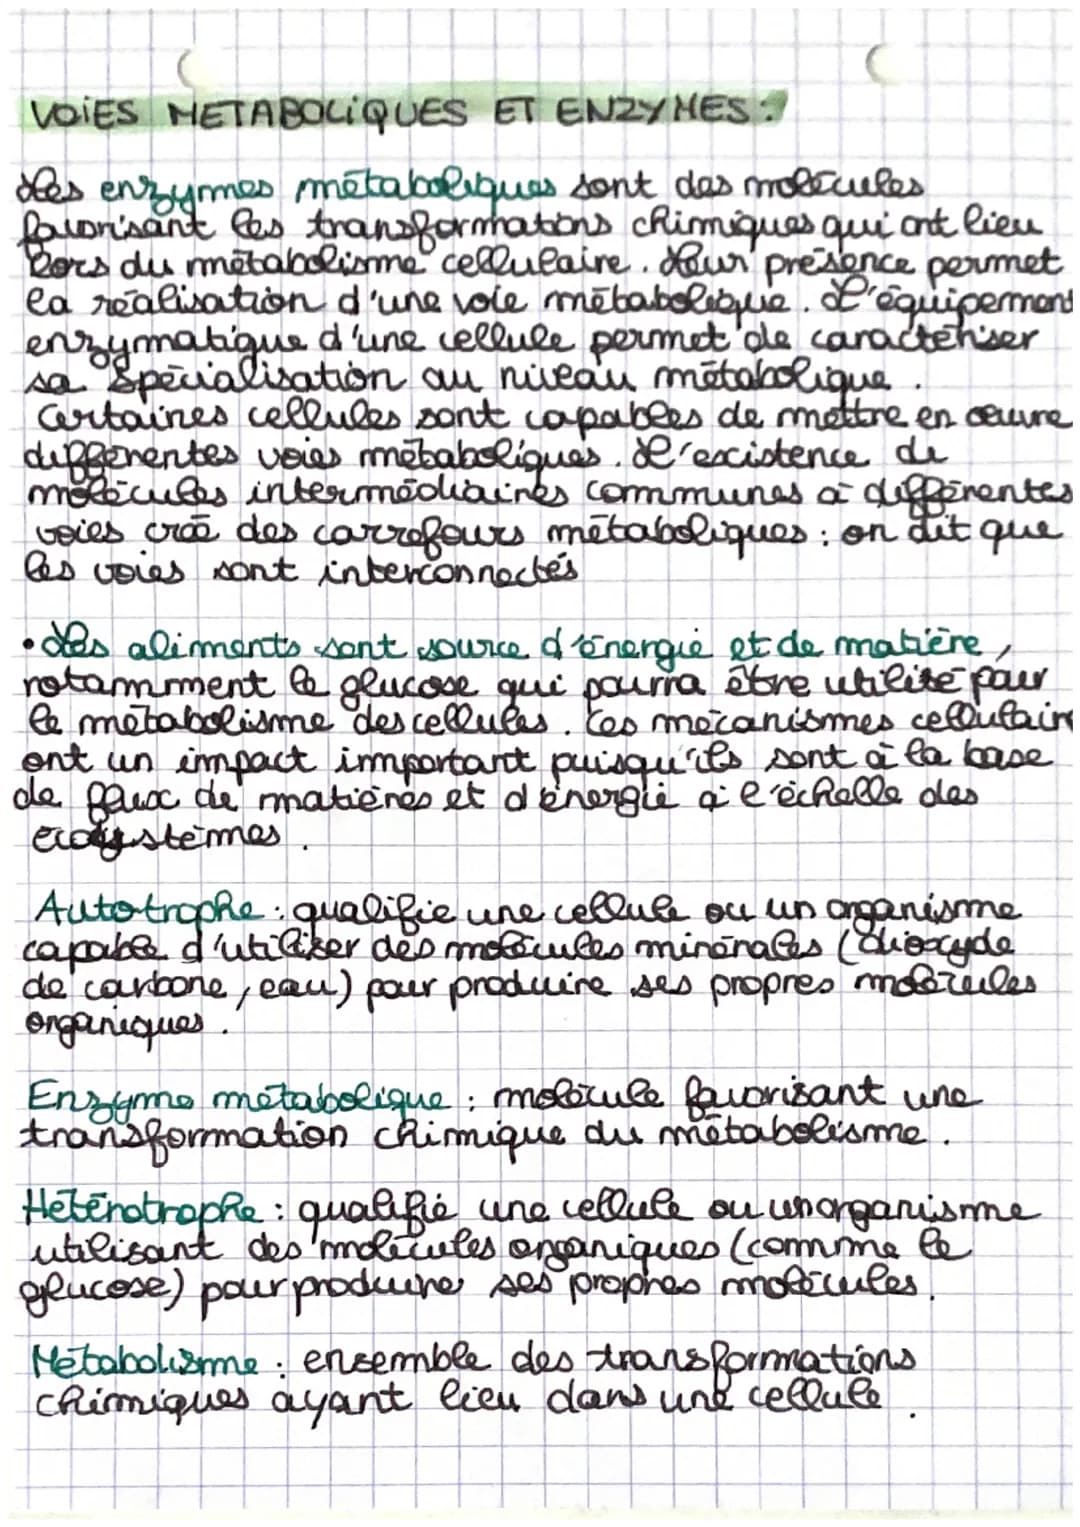 VOIES METABOLIQUES ET ENZYMES :
Les enzymes métaboliques sont des molécules
favorisant les transformations chimiques qui ont lieu
lors du métabolisme cellulaire. Leur présence permet
la réalisation d'une voie métabolique. L'équipement
enzymatique d'une cellule permet de caractériser
sa spécialisation au niveau métabolique.
Certaines cellules sont capables de mettre en œuvre
différentes voies métaboliques. L'existence de
molécules intermédiaires communes à différentes
voies crée des carrefours métaboliques : on dit que
les voies sont interconnectés
• Les aliments sont source d'énergie et de matière,
notamment le glucose qui pourra être utilisé pour
le métabolisme des cellules. Ces mécanismes cellulaire
ont un impact important puisqu'ils sont à la base
de flux de matières et d'énergie à l'échelle des
écosystèmes.
Autotrophe : qualifie une cellule ou un organisme
capable d'utiliser des molécules minérales (dioxyde
de carbone, eau) pour produire ses propres molécules
organiques.
Enzyme métabolique : molécule favorisant une
transformation chimique du métabolisme.
Hétérotrophe : qualifie une cellule ou un organisme
utilisant des molécules organiques (comme le
glucose) pour produire ses propres molécules.
Métabolisme : ensemble des transformations
chimiques ayant lieu dans une cellule.